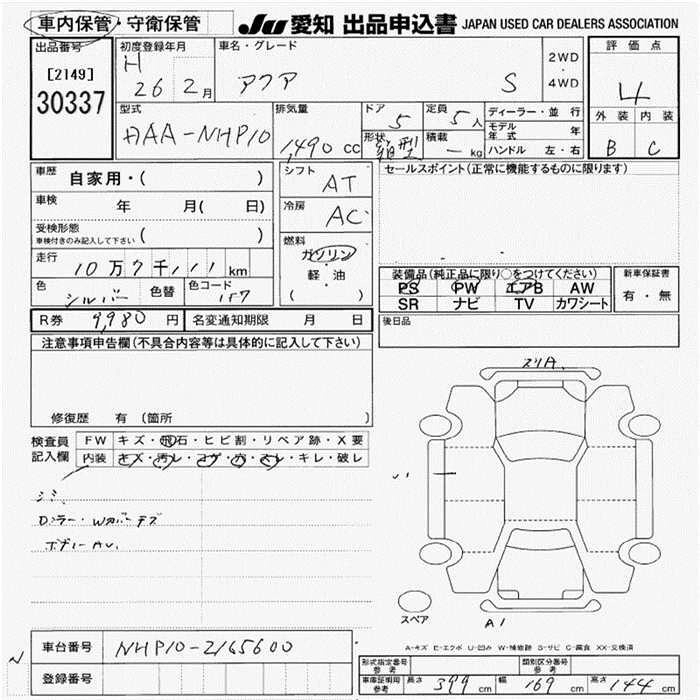 車内保管・守衛保管 JU 愛知 出品申込書 JAPAN USED CAR DEALERS ASSOCIATION
出品番号 [2149] 30337
初度登録年月 H 26 2月
車名・グレード アクア S
2WD・4WD
評価点 4
外装 内装
B C
型式 DAA-NHP10
排気量 1,490 cc
ドア 5 形状 箱型
定員 5人 積載 - kg
ディーラー・並行
モデル年式 年
ハンドル 左・右
車歴 自家用・( )
車検 年 月( 日)
受検形態 車検付きのみ記入して下さい ( )
走行 10万7千111km
色 シルバー 色替 色コード 1F7
シフト AT
冷房 AC
燃料 ガソリン
軽・油
( )
セールスポイント(正常に機能するものに限ります)
装備品(純正品に限り○をつけてください)
PS PW エアB AW
SR ナビ TV カワシート
新車保証書
有・無
R券 9,980円 名変通知期限 月 日
後日品
注意事項申告欄(不具合内容等は具体的に記入して下さい)
修復歴 有(箇所 )
検査員記入欄
FW キズ・飛石・ヒビ割・リペア跡・X要
内装 キズ・汚レ・コゲ・穴・スレ・キレ・破レ
シミ
Dミラー・Wカバーキズ
ボデーAU.
スリA
スペア
A1
A-キズ E-エクボ U-凹み W-補修跡 S-サビ C-腐食 XX-交換済
車台番号 NHP10-2165600
登録番号
N
形式指定番号 参考 類別区分番号 参考
車庫証明用 参考 長さ 399 cm 幅 169 cm 高さ 144 cm